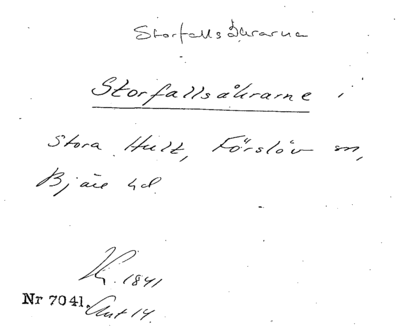 Storfallsåkrarna
Storfallsåkrarne i
Stora Hult, Förslöv sn,
Bjäre hd.
1841
Nr 7041. Akt 14.